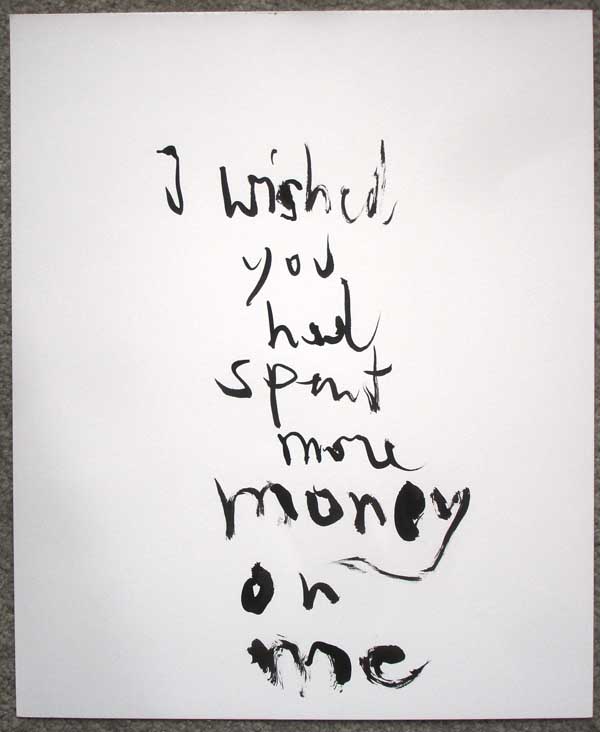 I wished
you
had
spent
more
money
on
me